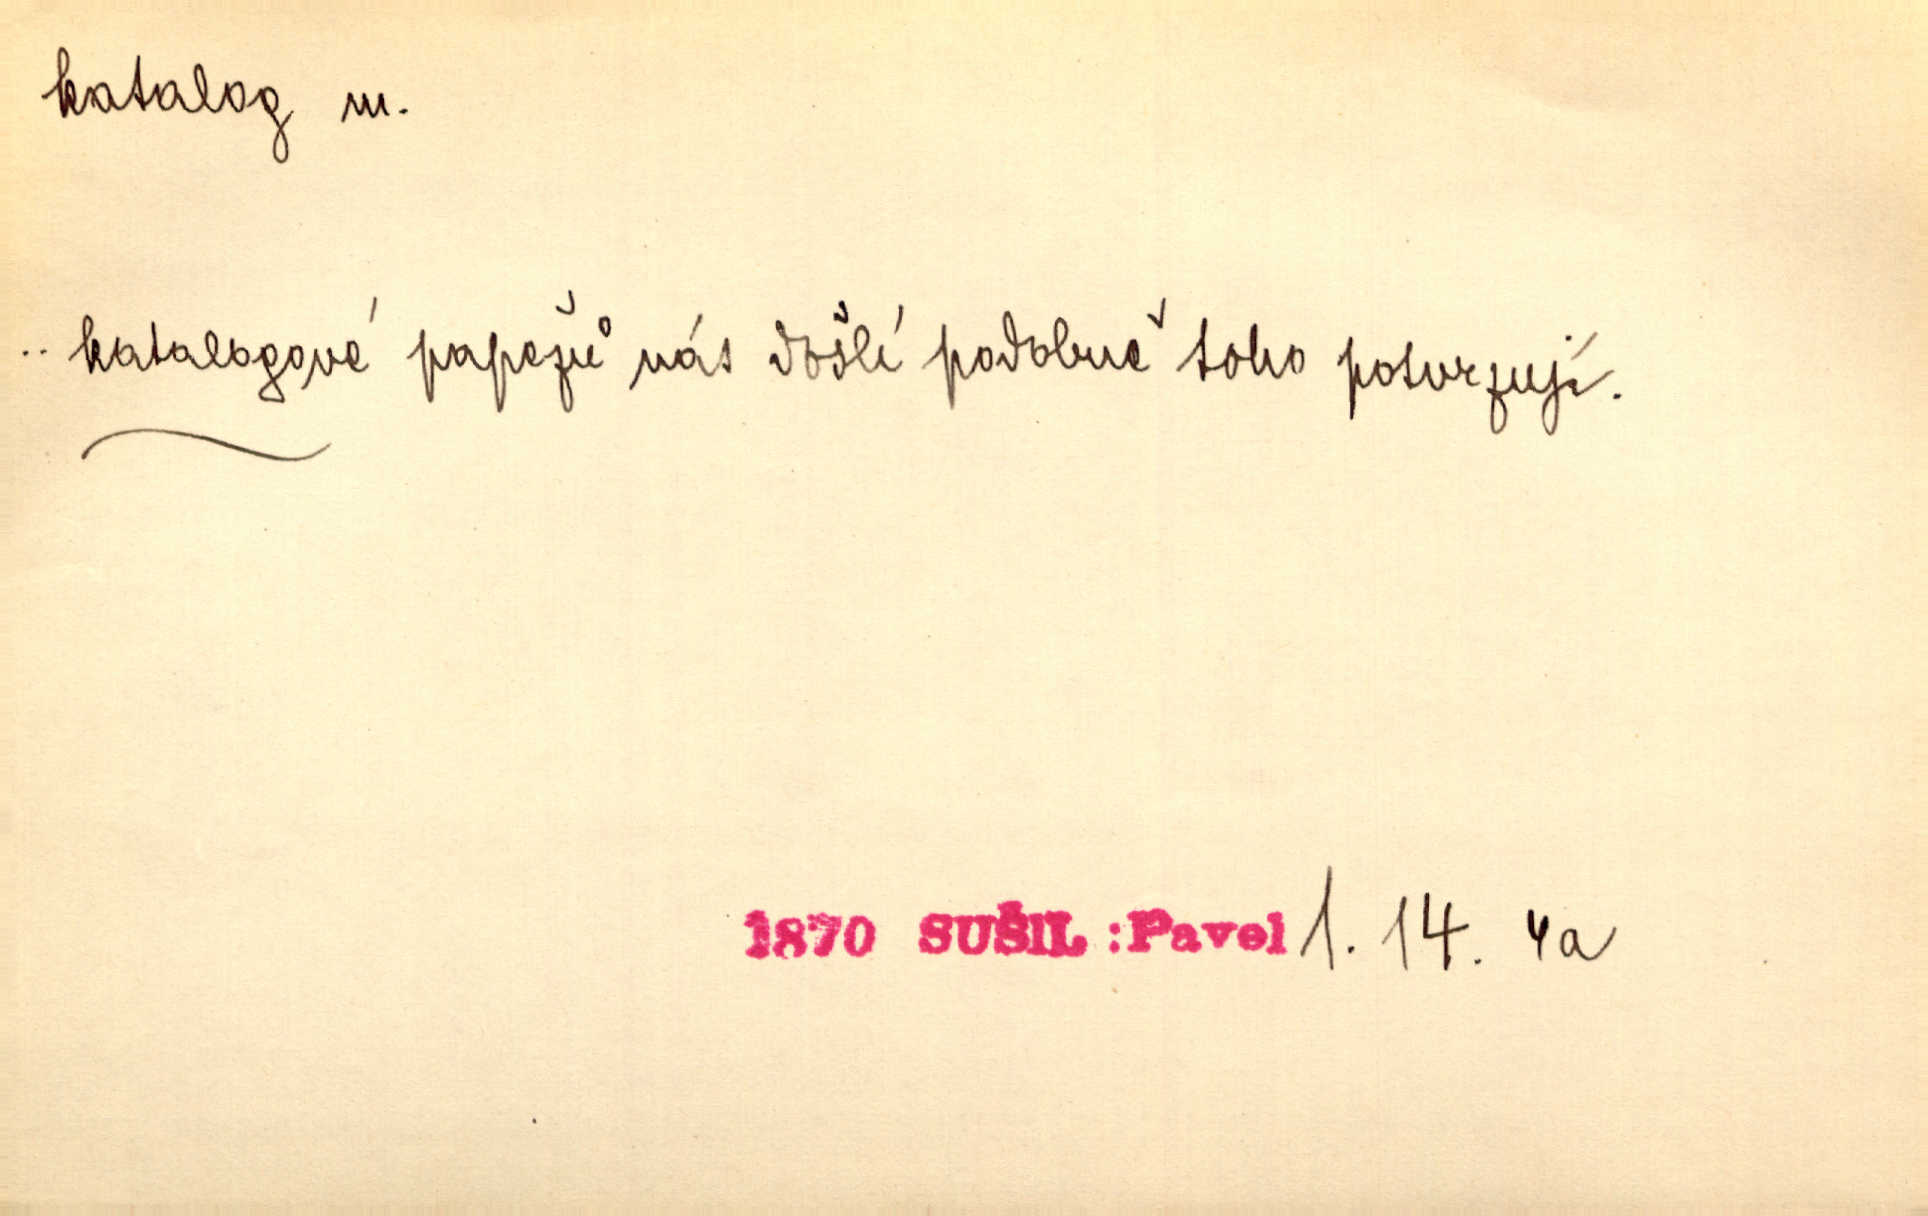 katalog m.
.. katalogové papežů nás došlí podobně toho potvrzují.
1870 SUŠIL :Pavel 1. 14. 4a